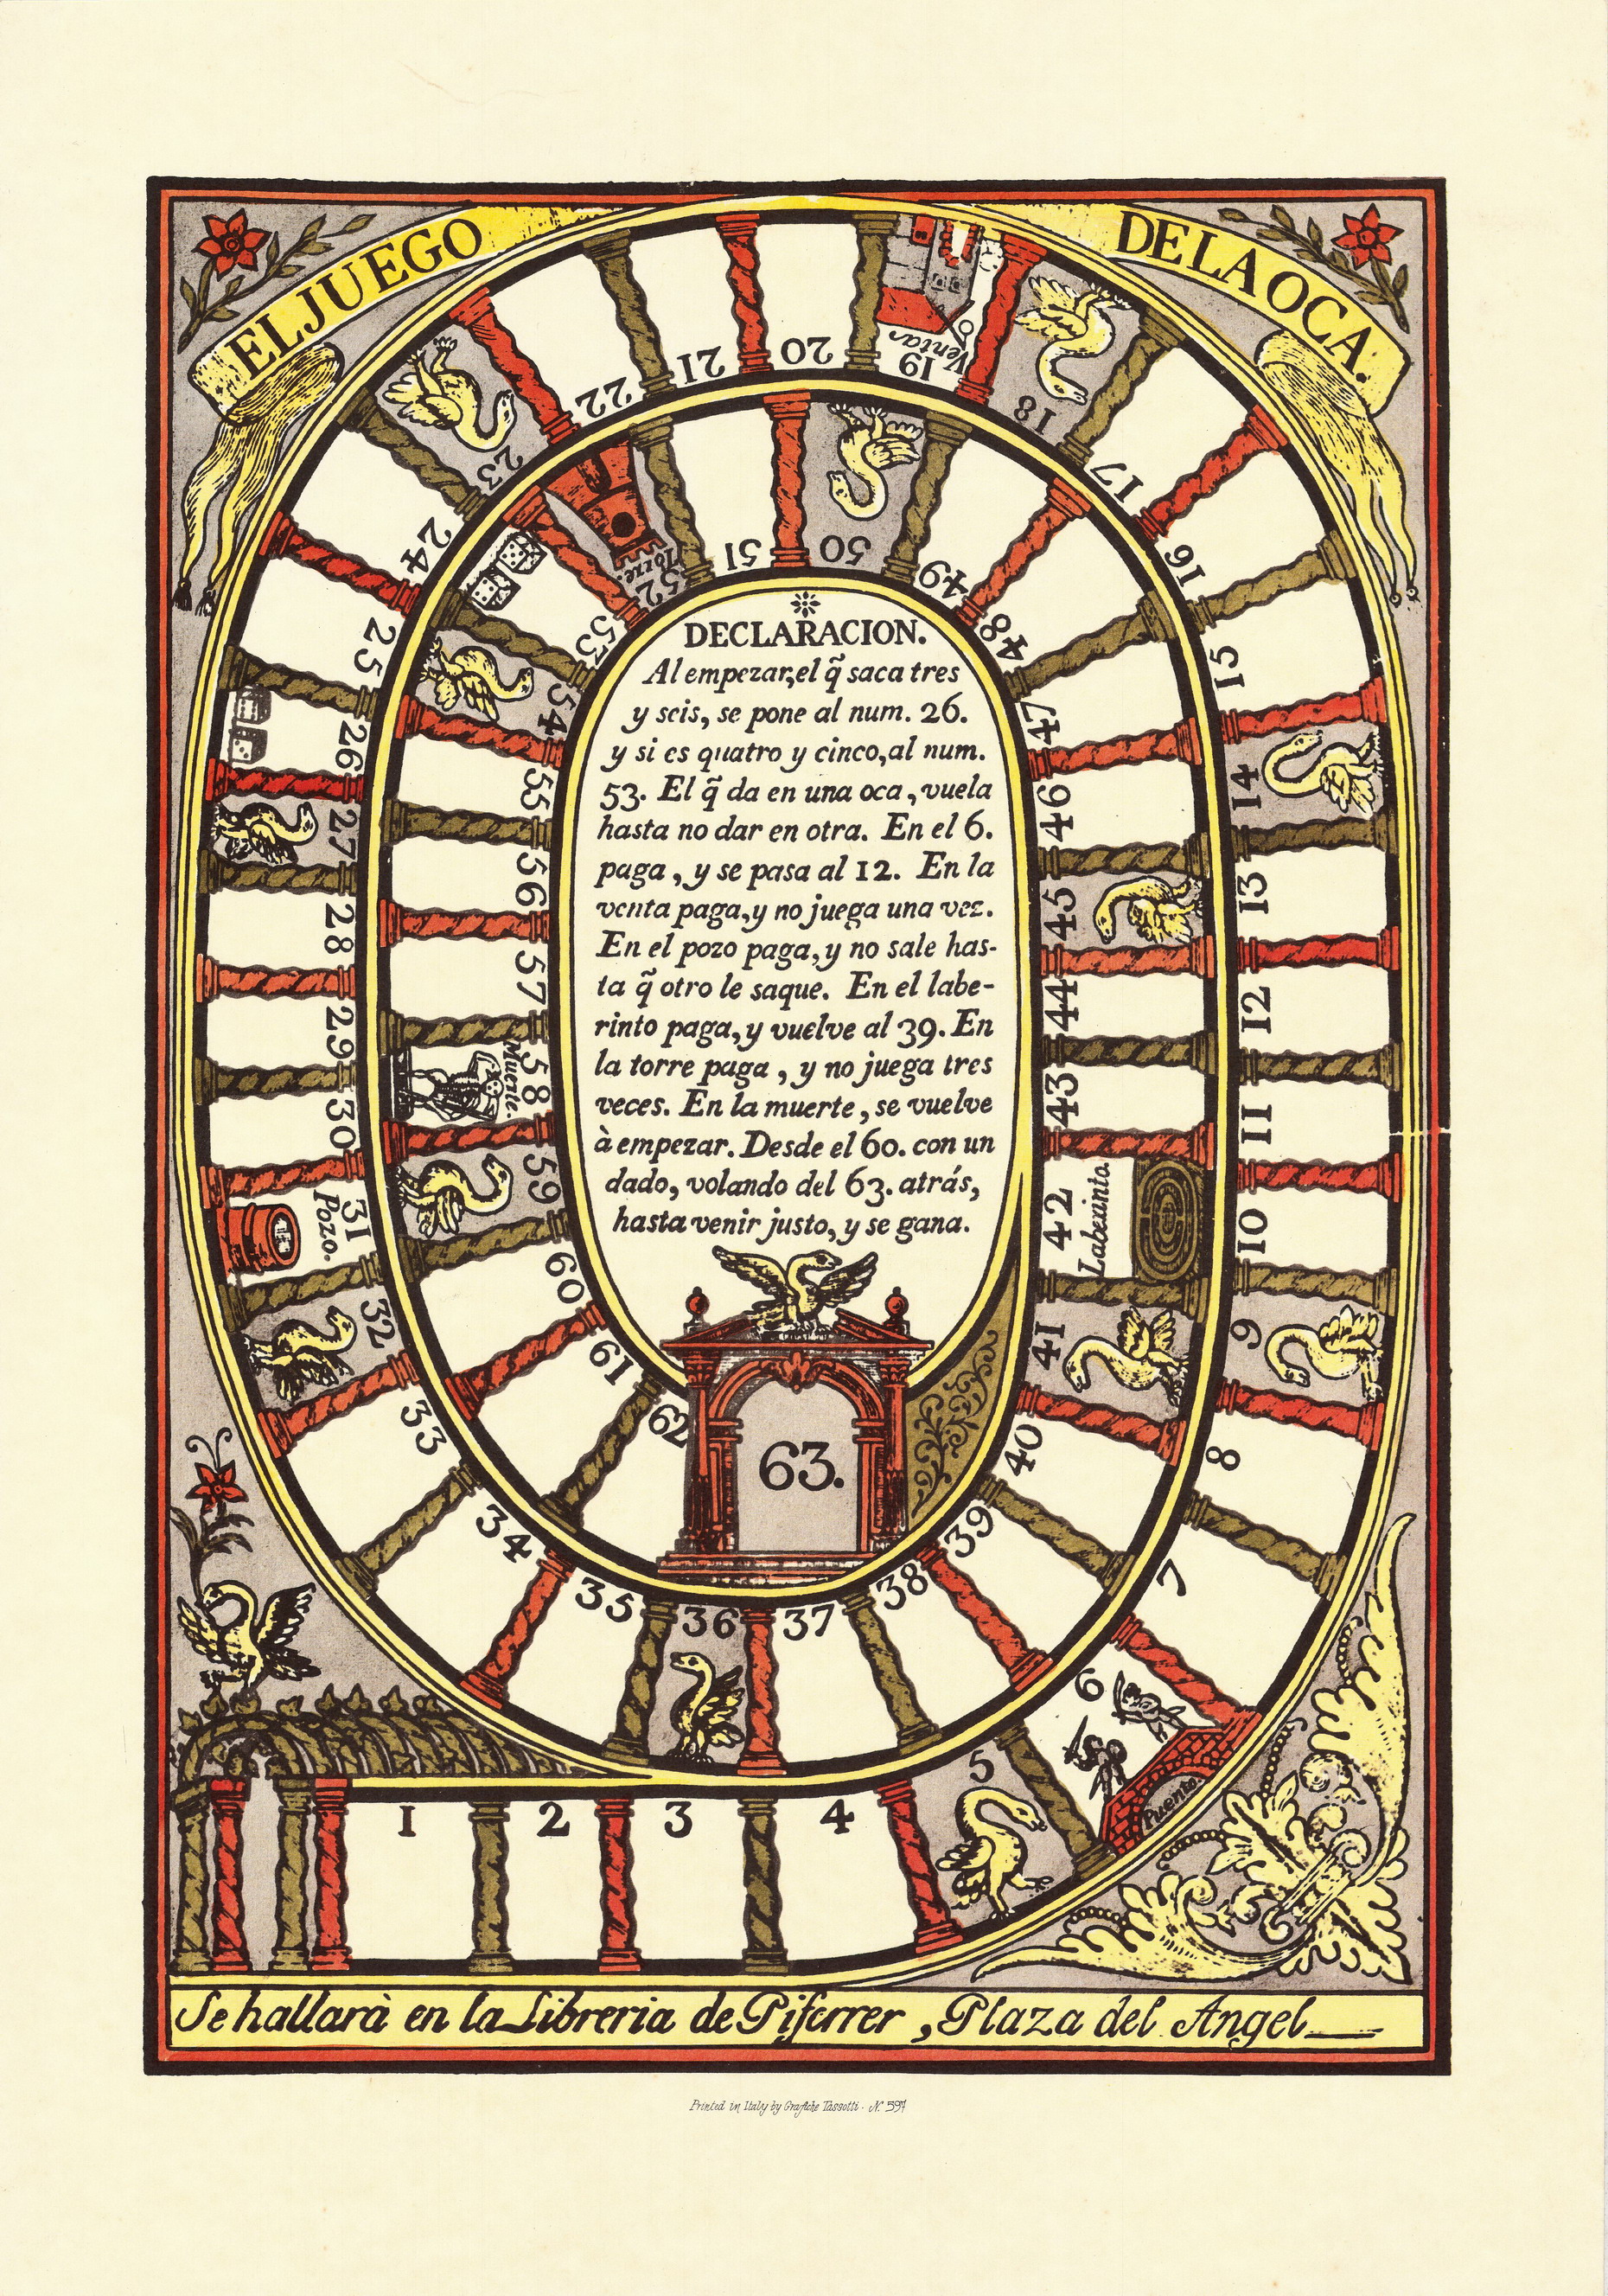 EL JUEGO DE LA OCA.
20
21
22
23
24
25
26
27
28
29
30
31
Pozo.
32
33
34
35
36
37
38
39
40
41
42
Laberinto.
43
44
45
46
47
48
49
50
51
52
Torre.
53
54
55
56
57
58
Muerte.
59
60
61
62
63.
19
Ventas
18
17
16
15
14
13
12
11
10
9
8
7
6
Puente.
5
4
3
2
1
DECLARACION.
Al empezar, el q̃ saca tres
y seis, se pone al num. 26.
y si es quatro y cinco, al num.
53. El q̃ da en una oca, vuela
hasta no dar en otra. En el 6.
paga, y se pasa al 12. En la
venta paga, y no juega una vez.
En el pozo paga, y no sale has-
ta q̃ otro le saque. En el labe-
rinto paga, y vuelve al 39. En
la torre paga, y no juega tres
veces. En la muerte, se vuelve
à empezar. Desde el 60. con un
dado, volando del 63. atrás,
hasta venir justo, y se gana.
Se hallarà en la Libreria de Piferrer, Plaza del Angel
Printed in Italy by Grafiche Tassotti - N. 597